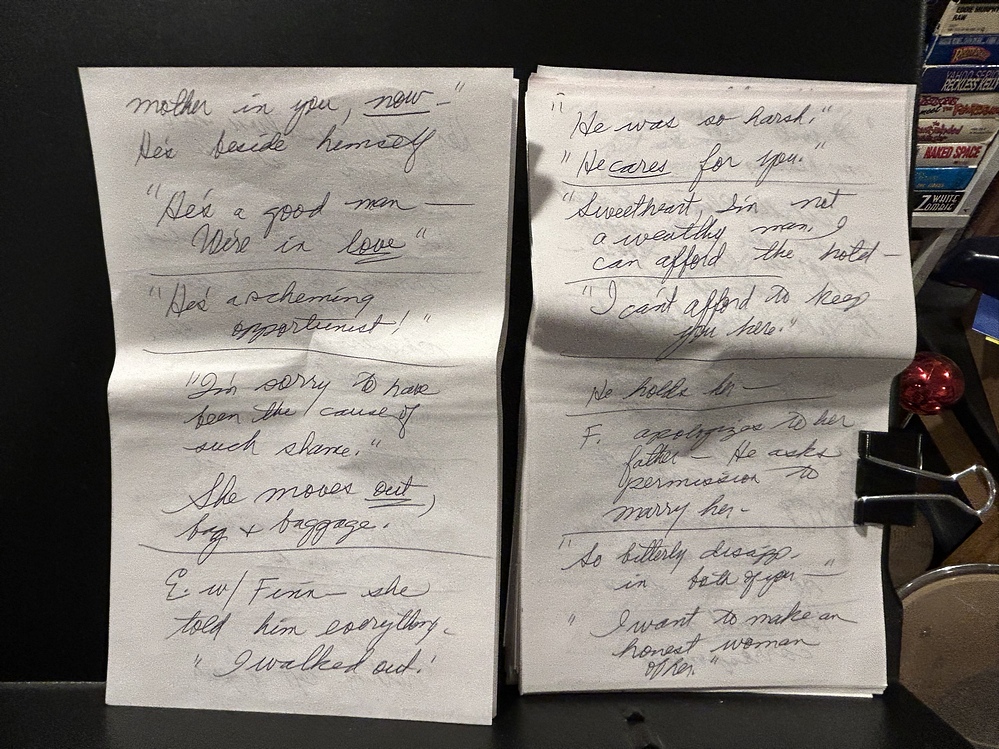 mother in you, now—"
He's beside himself
"He's a good man —
We're in love"
"He's a scheming
opportunist!"
"I'm sorry to have
been the cause of
such shame."
She moves out,
bag + baggage.
E. w/ Finn— she
told him everything.
"I walked out."
"He was so harsh."
"He cares for you."
"Sweetheart, I'm not
a wealthy man, I
can afford the hotel—
"I can't afford to keep
you here."
He holds her—
F. apologizes to her
father — He asks
permission to
marry her—
"So bitterly disapp.
in both of you—"
"I want to make an
honest woman
of her."
EDDIE MURPHY
RAW
YAHOO SERIOUS
RECKLESS KELLY
NAKED SPACE
WHITE
ZOMBIE